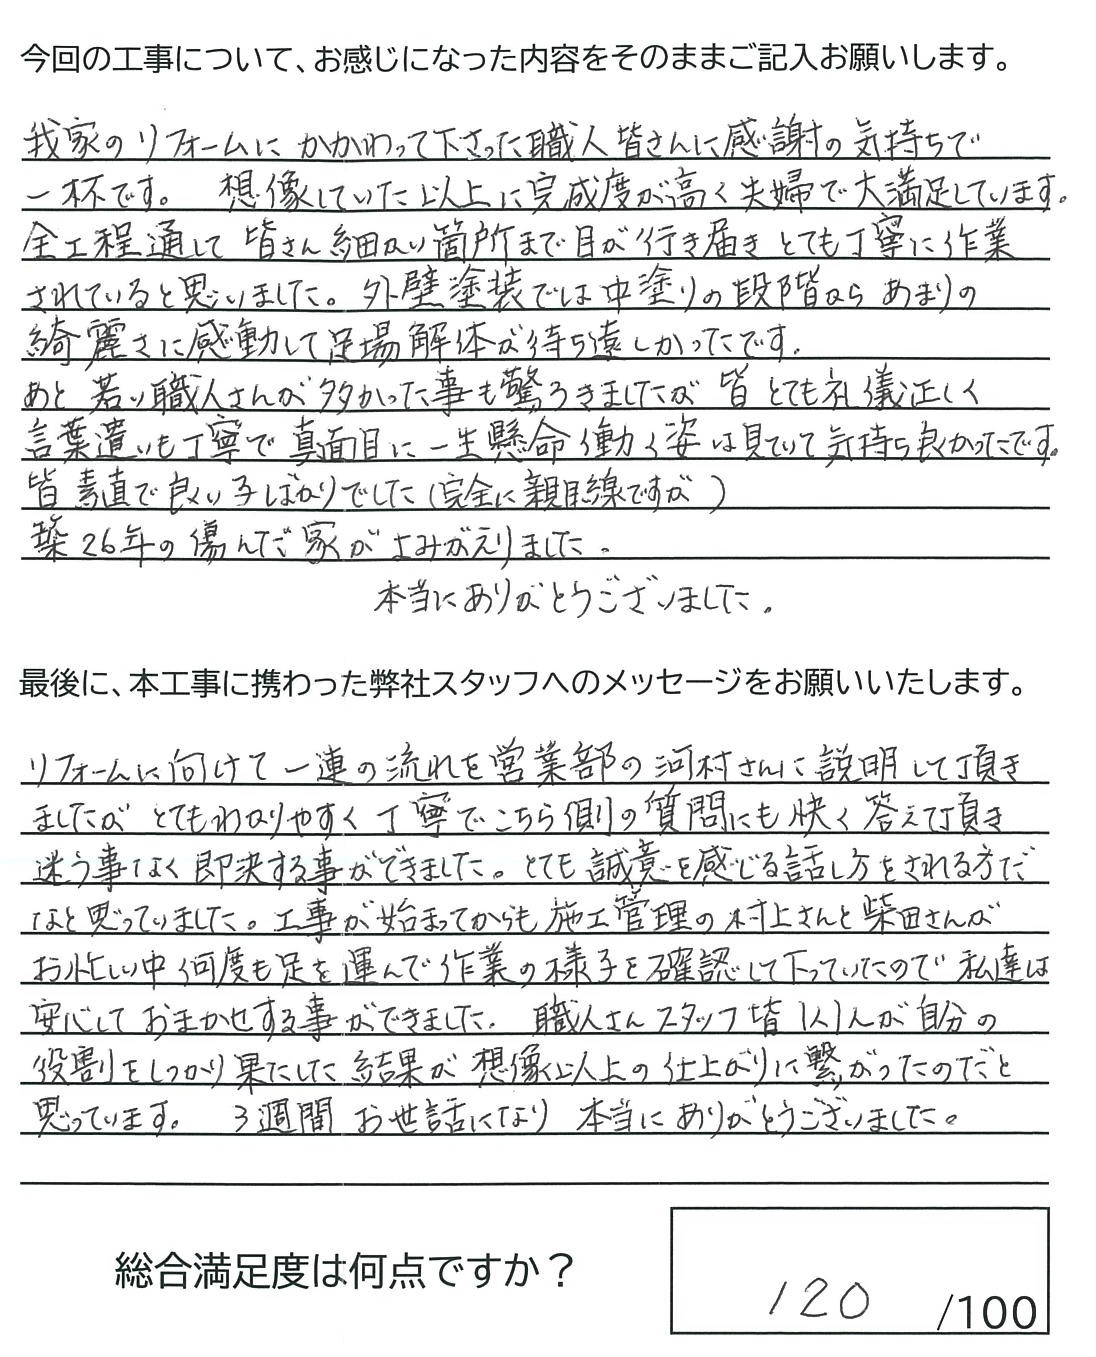 今回の工事について、お感じになった内容をそのままご記入お願いします。
我家のリフォームにかかわって下さった職人皆さんに感謝の気持ちで
一杯です。 想像していた以上に完成度が高く夫婦で大満足しています。
全工程通して皆さん細かい箇所まで目が行き届きとても丁寧に作業
されていると思いました。外壁塗装では中塗りの段階ならあまりの
綺麗さに感動して足場解体が待ち遠しかったです。
あと若い職人さんが多かった事も驚ろきましたが皆とても礼儀正しく
言葉遣いも丁寧で真面目に一生懸命働く姿は見ていて気持ち良かったです。
皆素直で良い子ばかりでした(完全に親目線ですが)
築26年の傷んだ家がよみがえりました。
本当にありがとうございました。
最後に、本工事に携わった弊社スタッフへのメッセージをお願いいたします。
リフォームに向けて一連の流れを営業部の河村さんに説明して頂き
ましたがとてもわかりやすく丁寧でこちら側の質問にも快く答えて頂き
迷う事なく即決する事ができました。とても誠意を感じる話し方をされる方だ
なと思っていました。工事が始まってからも施工管理の村上さんと柴田さんが
お忙しい中何度も足を運んで作業の様子を確認して下っていたので私達は
安心しておまかせする事ができました。 職人さんスタッフ皆1人1人が自分の
役割をしっかり果たした結果が想像以上の仕上がりに繋がったのだと
思っています。 3週間お世話になり本当にありがとうございました。
総合満足度は何点ですか？
120 /100